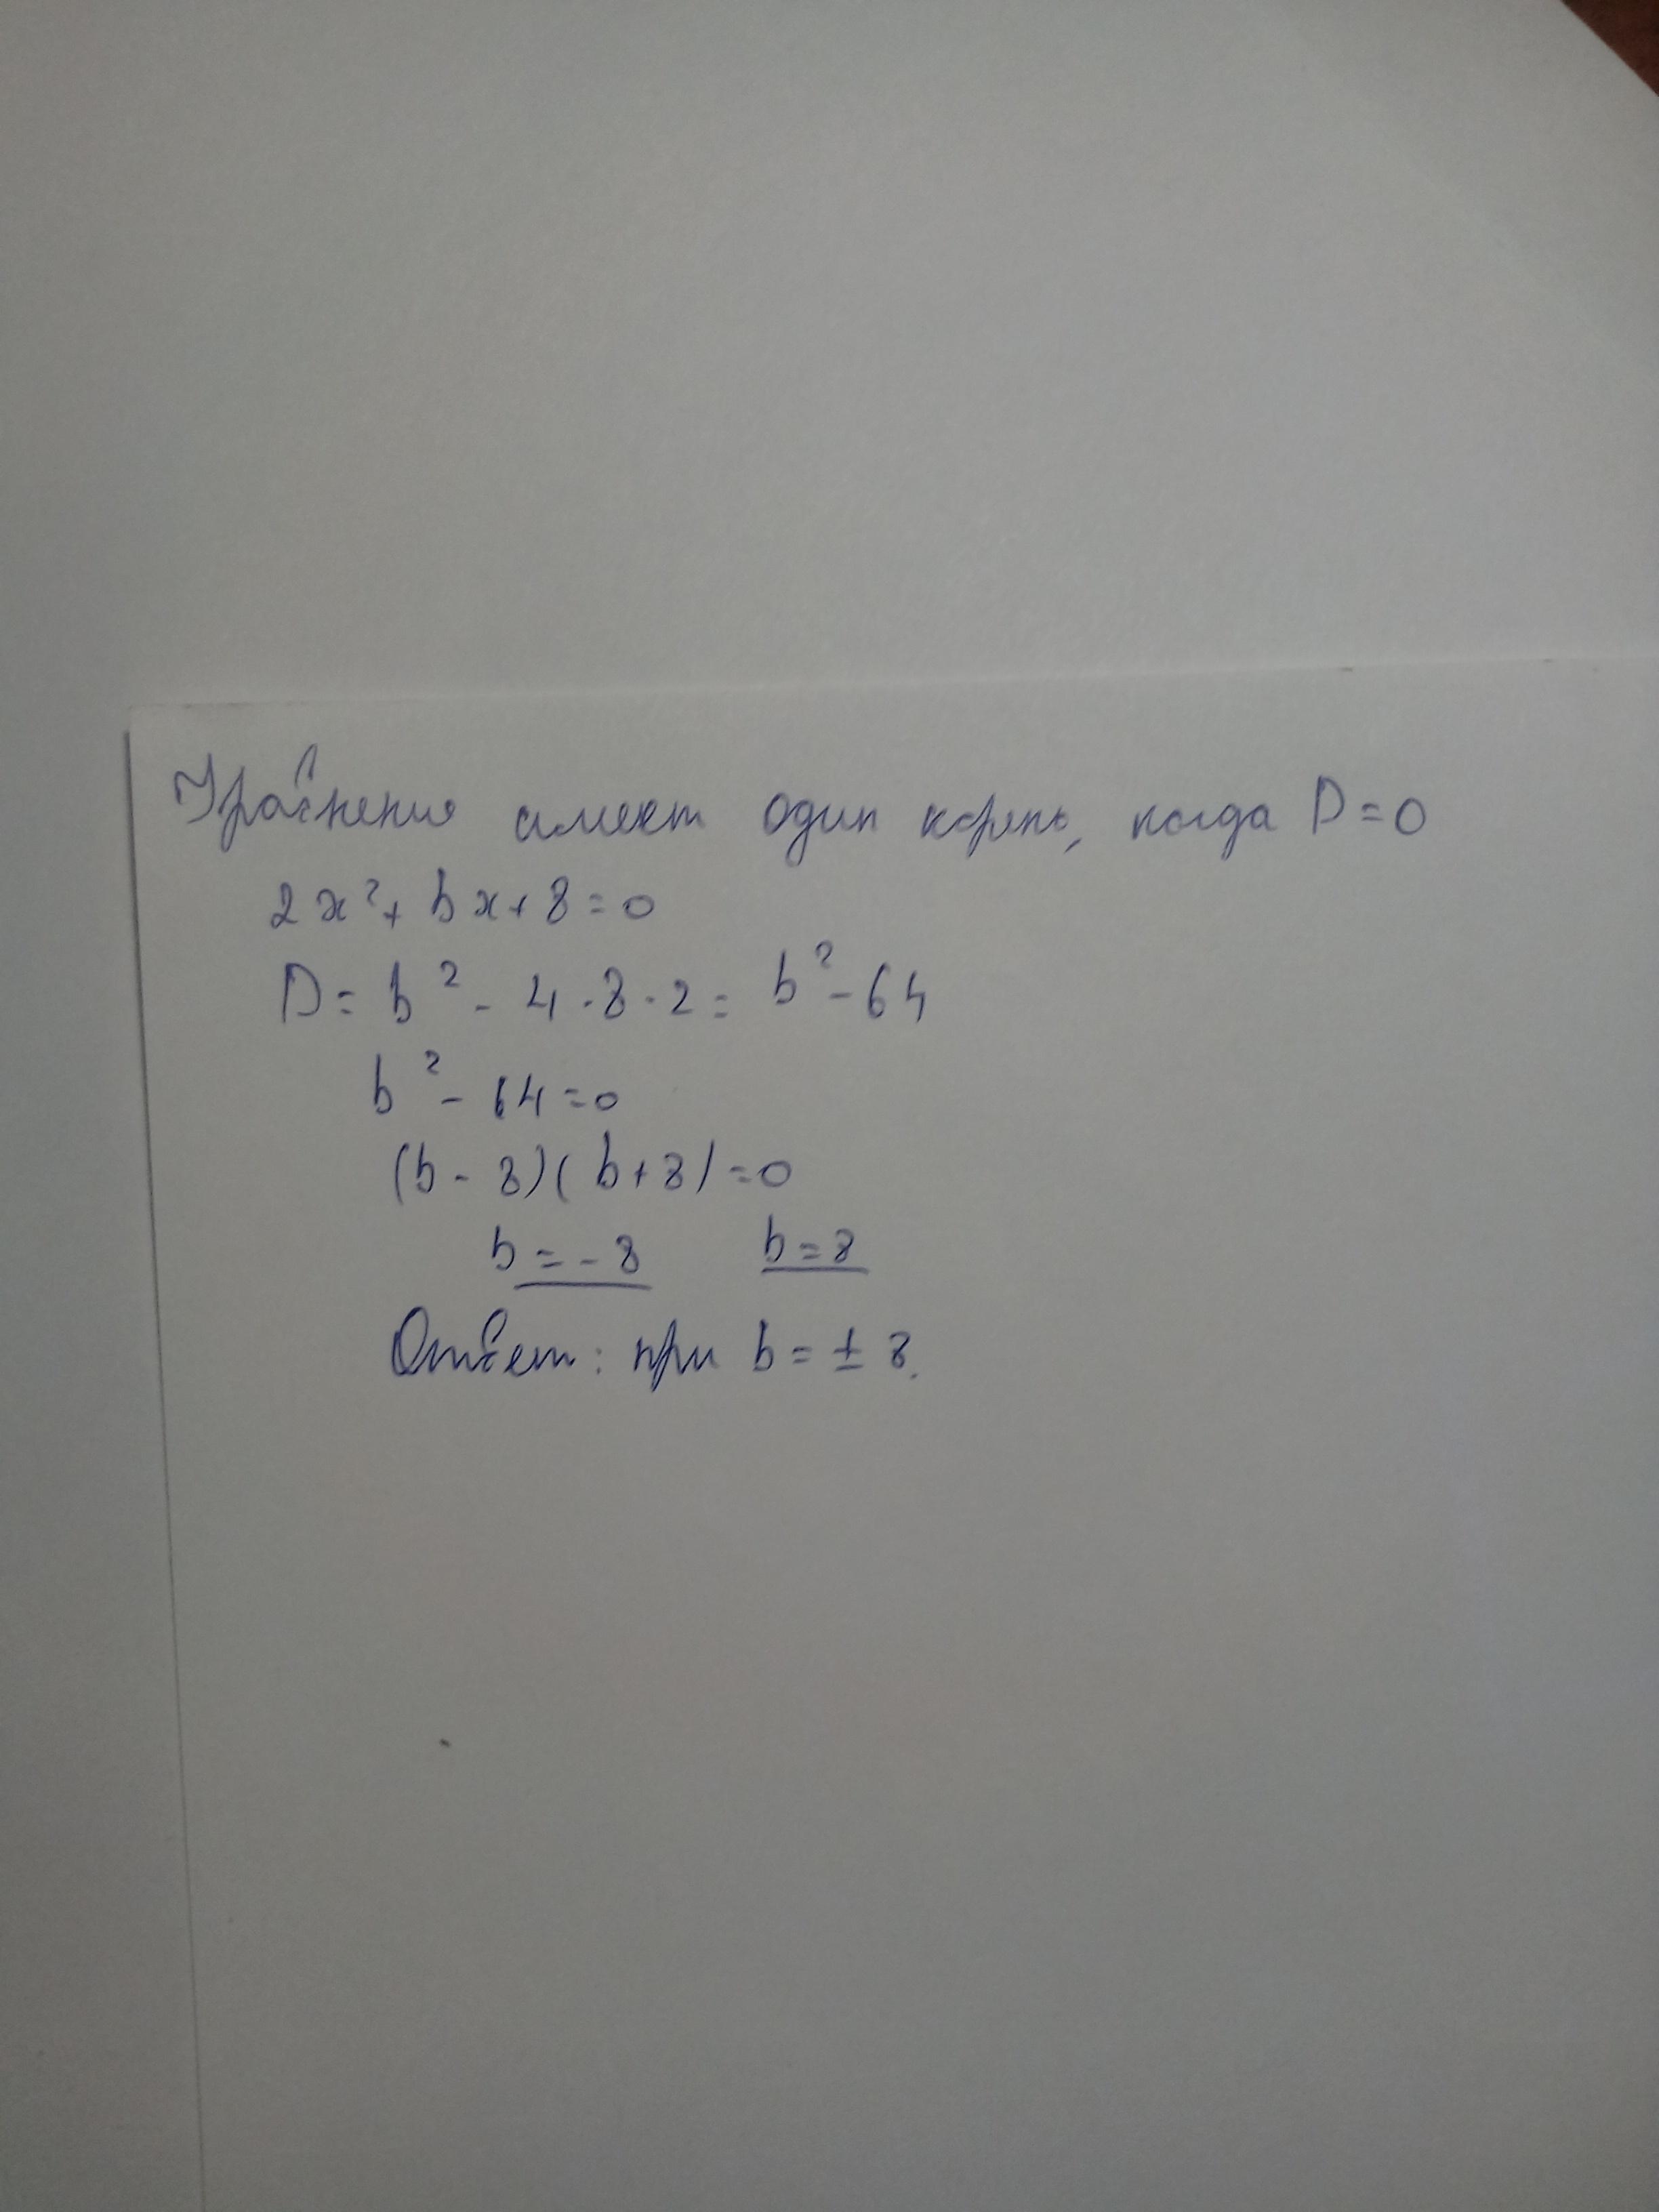 Уравнение имеет один корень, когда D=0
2x²+bx+8=0
D=b²-4·8·2=b²-64
b²-64=0
(b-8)(b+8)=0
b=-8 b=8
Ответ: при b=±8.